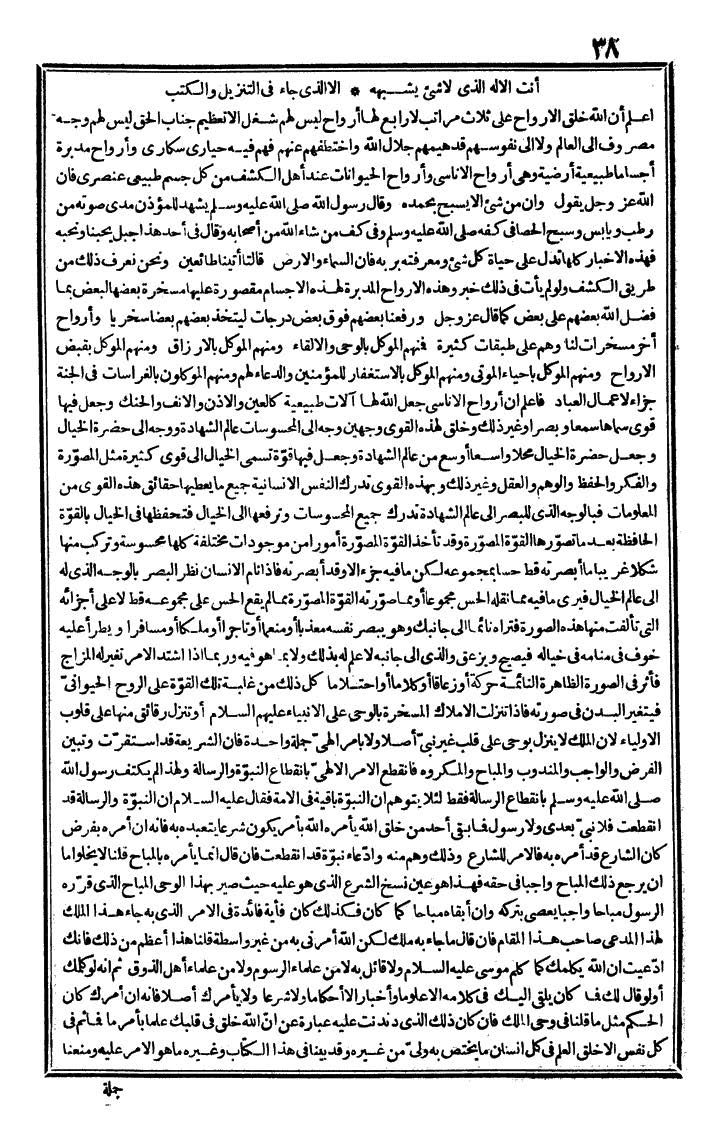 ٣٨
أنت الاله الذى لاشئ يشبهه * الاالذى جاء فى التنزيل والكتب
اعلم أن الله خلق الارواح على ثلاث مراتب لارابع لها أرواح ليس لهم شغل الاتعظيم جناب الحق ليس لهم وجه
مصروف الى العالم ولا الى نفوسهم قدهيمهم جلال الله واختطفهم عنهم فهم فيه حيارى سكارى وأرواح مدبرة
أجساما طبيعية أرضية وهى أرواح الاناسى وأرواح الحيوانات عند أهل الكشف من كل جسم طبيعى عنصرى فان
الله عز وجل يقول وان من شئ الايسبح بحمده وقال رسول الله صلى الله عليه وسلم يشهد للمؤذن مدى صوته من
رطب ويابس وسبح الحصا فى كفه صلى الله عليه وسلم وفى كف من شاء الله من أصحابه وقال فى أحد هذا جبل يحبنا ونحبه
فهذه الاخبار كلها تدل على حياة كل شئ ومعرفته بربه فان السماء والارض قالتا أتيناطائعين ونحن نعرف ذلك من
طريق الكشف ولولم يأت فى ذلك خبر وهذه الارواح المدبرة لهذه الاجسام مقصورة عليها مسخرة بعضها لبعض بما
فضل الله بعضهم على بعض كما قال عز وجل ورفعنا بعضهم فوق بعض درجات ليتخذ بعضهم بعضا سخريا وأرواح
أخر مسخرات لنا وهم على طبقات كثيرة فمنهم الموكل بالوحى والالقاء ومنهم الموكل بالارزاق ومنهم الموكل بقبض
الارواح ومنهم الموكل باحياء الموتى ومنهم الموكل بالاستغفار للمؤمنين والدعاء لهم ومنهم الموكلون بالغراسات فى الجنة
جزاء لاعمال العباد فاعلم ان أرواح الاناسى جعل الله لها آلات طبيعية كالعين والاذن والانف والحنك وجعل فيها
قوى سماها سمعا وبصرا وغير ذلك وخلق لهذه القوى وجهين وجه الى المحسوسات عالم الشهادة ووجه الى حضرة الخيال
وجعل حضرة الخيال محلا واسعا أوسع من عالم الشهادة وجعل فيها قوّة تسمى الخيال الى قوى كثيرة مثل المصوّرة
والفكر والحفظ والوهم والعقل وغير ذلك وبهذه القوى تدرك النفس الانسانية جميع ما يعطيها حقائق هذه القوى من
المعلومات فبالوجه الذى للبصر الى عالم الشهادة تدرك جميع المحسوسات وترفعها الى الخيال فتحفظها فى الخيال بالقوّة
الحافظة بعد ما تصوّرها القوّة المصوّرة وقد تأخذ القوّة المصوّرة أمورا من موجودات مختلفة كلها محسوسة وتركب منها
شكلا غريبا ما أبصرته قط حسا بمجموعه لكن ما فيه جزء الا وقد أبصرته فاذا نام الانسان نظر البصر بالوجه الذى له
الى عالم الخيال فيرى ما فيه مما نقله الحس مجموعا أو مما صوّرته القوّة المصوّرة مما لم يقع الحس على مجموعه قط لا على أجزائه
التى تألفت منها هذه الصورة فتراه نائما الى جانبك وهو يبصر نفسه معذبا أو منعما أو تاجرا أو ملكا أو مسافرا ويطرأ عليه
خوف فى منامه فى خياله فيصيح ويزعق والذى الى جانبه لا علم له بذلك ولا بما هو فيه وربما اذا اشتد الامر تغيرله المزاج
فأثر فى الصورة الظاهرة النائمة حركة أو زعاقا أو كلاما أو احتلاما كل ذلك من غلبة تلك القوّة على الروح الحيوانىّ
فيتغير البدن فى صورته فاذا تنزلت الاملاك المسخرة بالوحى على الانبياء عليهم السلام أو تنزل رقائق منها على قلوب
الاولياء لان الملك لا ينزل بوحى على قلب غير نبىّ أصلا ولا بامر الهىّ جملة واحدة فان الشريعة قد استقرّت وتبين
الفرض والواجب والمندوب والمباح والمكروه فانقطع الامر الالهىّ بانقطاع النبوّة والرسالة ولهذا لم يكتف رسول الله
صلى الله عليه وسلم بانقطاع الرسالة فقط لئلا يتوهم ان النبوّة باقية فى الامة فقال عليه السلام ان النبوّة والرسالة قد
انقطعت فلا نبىّ بعدى ولا رسول فما بقى أحد من خلق الله يأمره الله بأمر يكون شرعا يتعبده به فانه ان أمره بفرض
كان الشارع قد أمره به فالامر للشارع وذلك وهم منه وادّعاء نبوّة قد انقطعت فان قال انما يأمره بالمباح قلنا لا يخلو اما
ان يرجع ذلك المباح واجبا فى حقه فهذا هو عين نسخ الشرع الذى هو عليه حيث صير بهذا الوحى المباح الذى قرّره
الرسول مباحا واجبا يعصى بتركه وان أبقاه مباحا كما كان فكذلك كان فأية فائدة فى الامر الذى به جاء هذا الملك
لهذا المدعى صاحب هذا المقام فان قال ما جاء به ملك لكن الله أمرنى به من غير واسطة قلنا هذا أعظم من ذلك فانك
ادّعيت ان الله يكلمك كما كلم موسى عليه السلام ولا قائل به لا من علماء الرسوم ولا من علماء أهل الذوق ثم انه لو كلمك
أو لو قال لك فما كان يلقى اليك فى كلامه الا علوما وأخبار الا أحكاما ولا شرعا ولا يأمرك أصلا فانه ان أمرك كان
الحكم مثل ما قلنا فى وحى الملك فان كان ذلك الذى دندنت عليه عبارة عن انّ الله خلق فى قلبك علما بأمر ما فما ثم فى
كل نفس الا خلق العلم فى كل انسان ما يختص به ولىّ من غيره وقد بينا فى هذا الكتاب وغيره ما هو الامر عليه ومنعنا
جملة